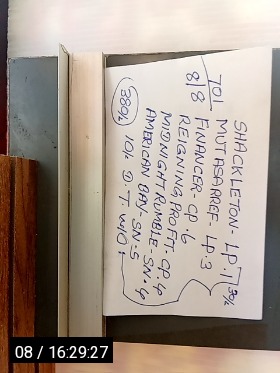 SHACKLETON - LP.1
MUTASARREF - LP.3
30%
701
8/8
FINANCER - CP.6
REIGNING PROFIT - CP.4
MIDNIGHT RUMBLE - SN.4
AMERICAN BAY - SN.5
10% D.T W/O
380%
08 / 16:29:27